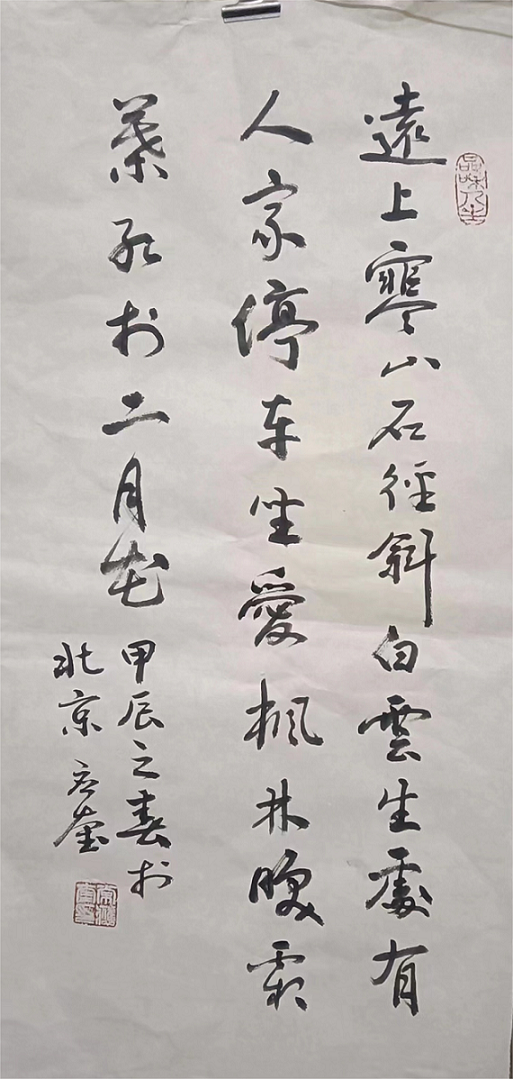 品味人生
遠上寒山石徑斜白雲生處有
人家停車坐愛楓林晚霜
葉紅於二月花
甲辰之春於
北京